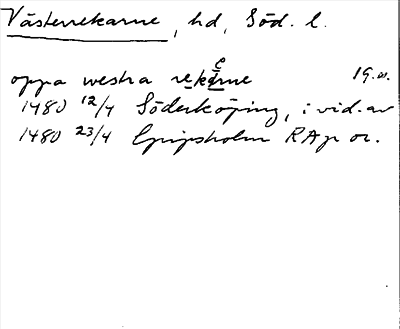 Västerrekarne, hd, Söd. l.
oppa westra rekarne 19.
1480 12/4 Söderköping, i vid. av
1480 23/4 Gripsholm RAp or.